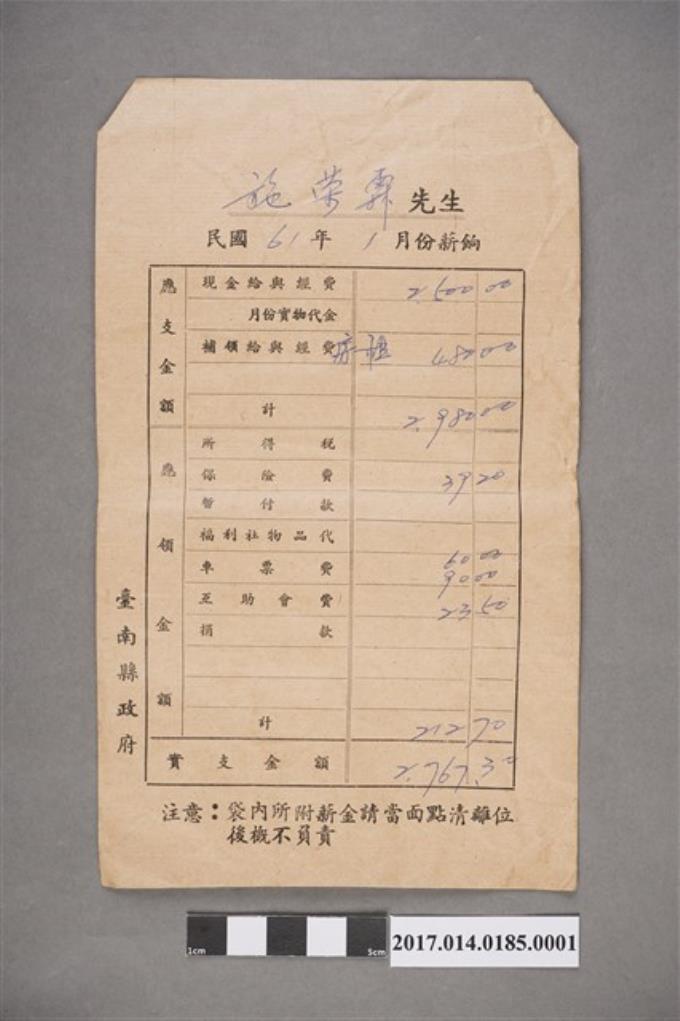 施荣霖 先生
民國 61 年 1 月份薪餉
應支金額
現金給與經費 2.500 00
月份實物代金
補領給與經費 房租 480 00
計 2.980 00
應領金額
所得稅
保險費 39 20
暫付款
福利社物品代 60 00
車票費 90 00
互助會費 23 50
捐款
計 212 70
實支金額 2.767.30
臺南縣政府
注意：袋內所附薪金請當面點清離位
後概不負責
1cm
5cm
2017.014.0185.0001